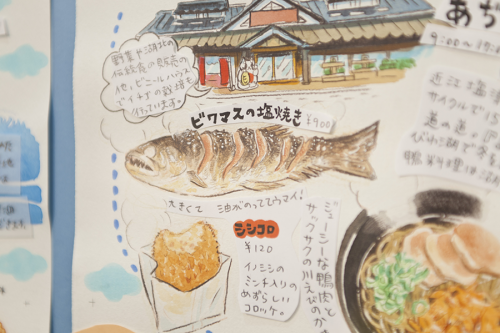 野菜や湖北の
伝統食の販売の
他、ビニールハウス
でイチゴの栽培も
行っています。
あぢ
9:00〜17
近江塩
サイクルで
道の道
びわ湖で
鴨
ビワマスの塩焼き ¥900
大きくて 油がのってウマイ!
シシコロ
¥120
イノシシの
ミンチ入りの
めずらしい
コロッケ。
ジューシーな鴨肉と
サックサクの川えびのか